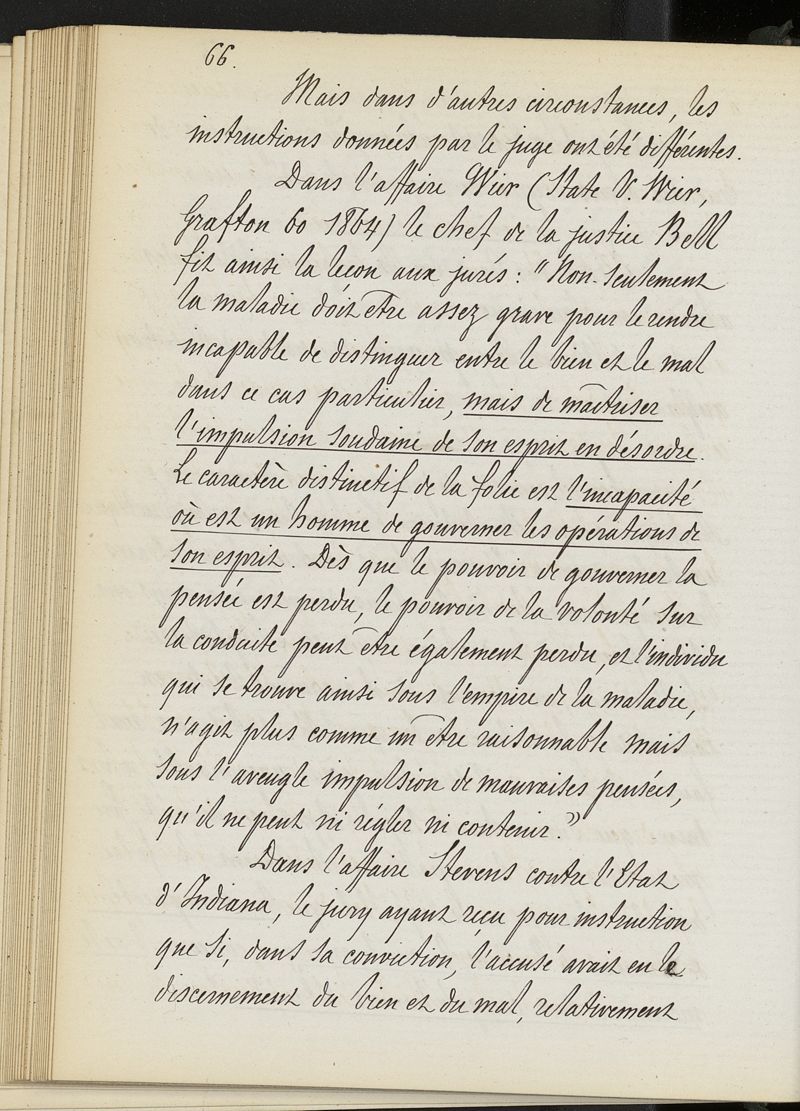 66.
Mais dans d'autres circonstances, les
instructions données par le juge ont été différentes.
Dans l'affaire Wier (State V. Wier,
Grafton 60 1864) le chef de la justice Bell
fit ainsi la leçon aux jurés : "Non-seulement
la maladie doit être assez grave pour le rendre
incapable de distinguer entre le bien et le mal
dans ce cas particulier, mais de maîtriser
l'impulsion soudaine de son esprit en désordre.
Le caractère distinctif de la folie est l'incapacité
où est un homme de gouverner les opérations de
son esprit. Dès que le pouvoir de gouverner la
pensée est perdu, le pouvoir de la volonté sur
la conduite peut être également perdu, et l'individu
qui se trouve ainsi sous l'empire de la maladie,
n'agit plus comme un être raisonnable mais
sous l'aveugle impulsion de mauvaises pensées,
qu'il ne peut ni régler ni contenir."
Dans l'affaire Stevens contre l'Etat
d'Indiana, le jury ayant reçu pour instruction
que si, dans sa conviction, l'accusé avait eu le
discernement du bien et du mal, relativement